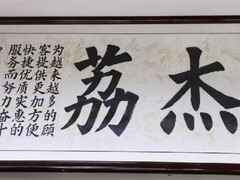 杰荔
为越来越多的顾
客提供更加方便
快捷优质实惠的
服务而努力奋